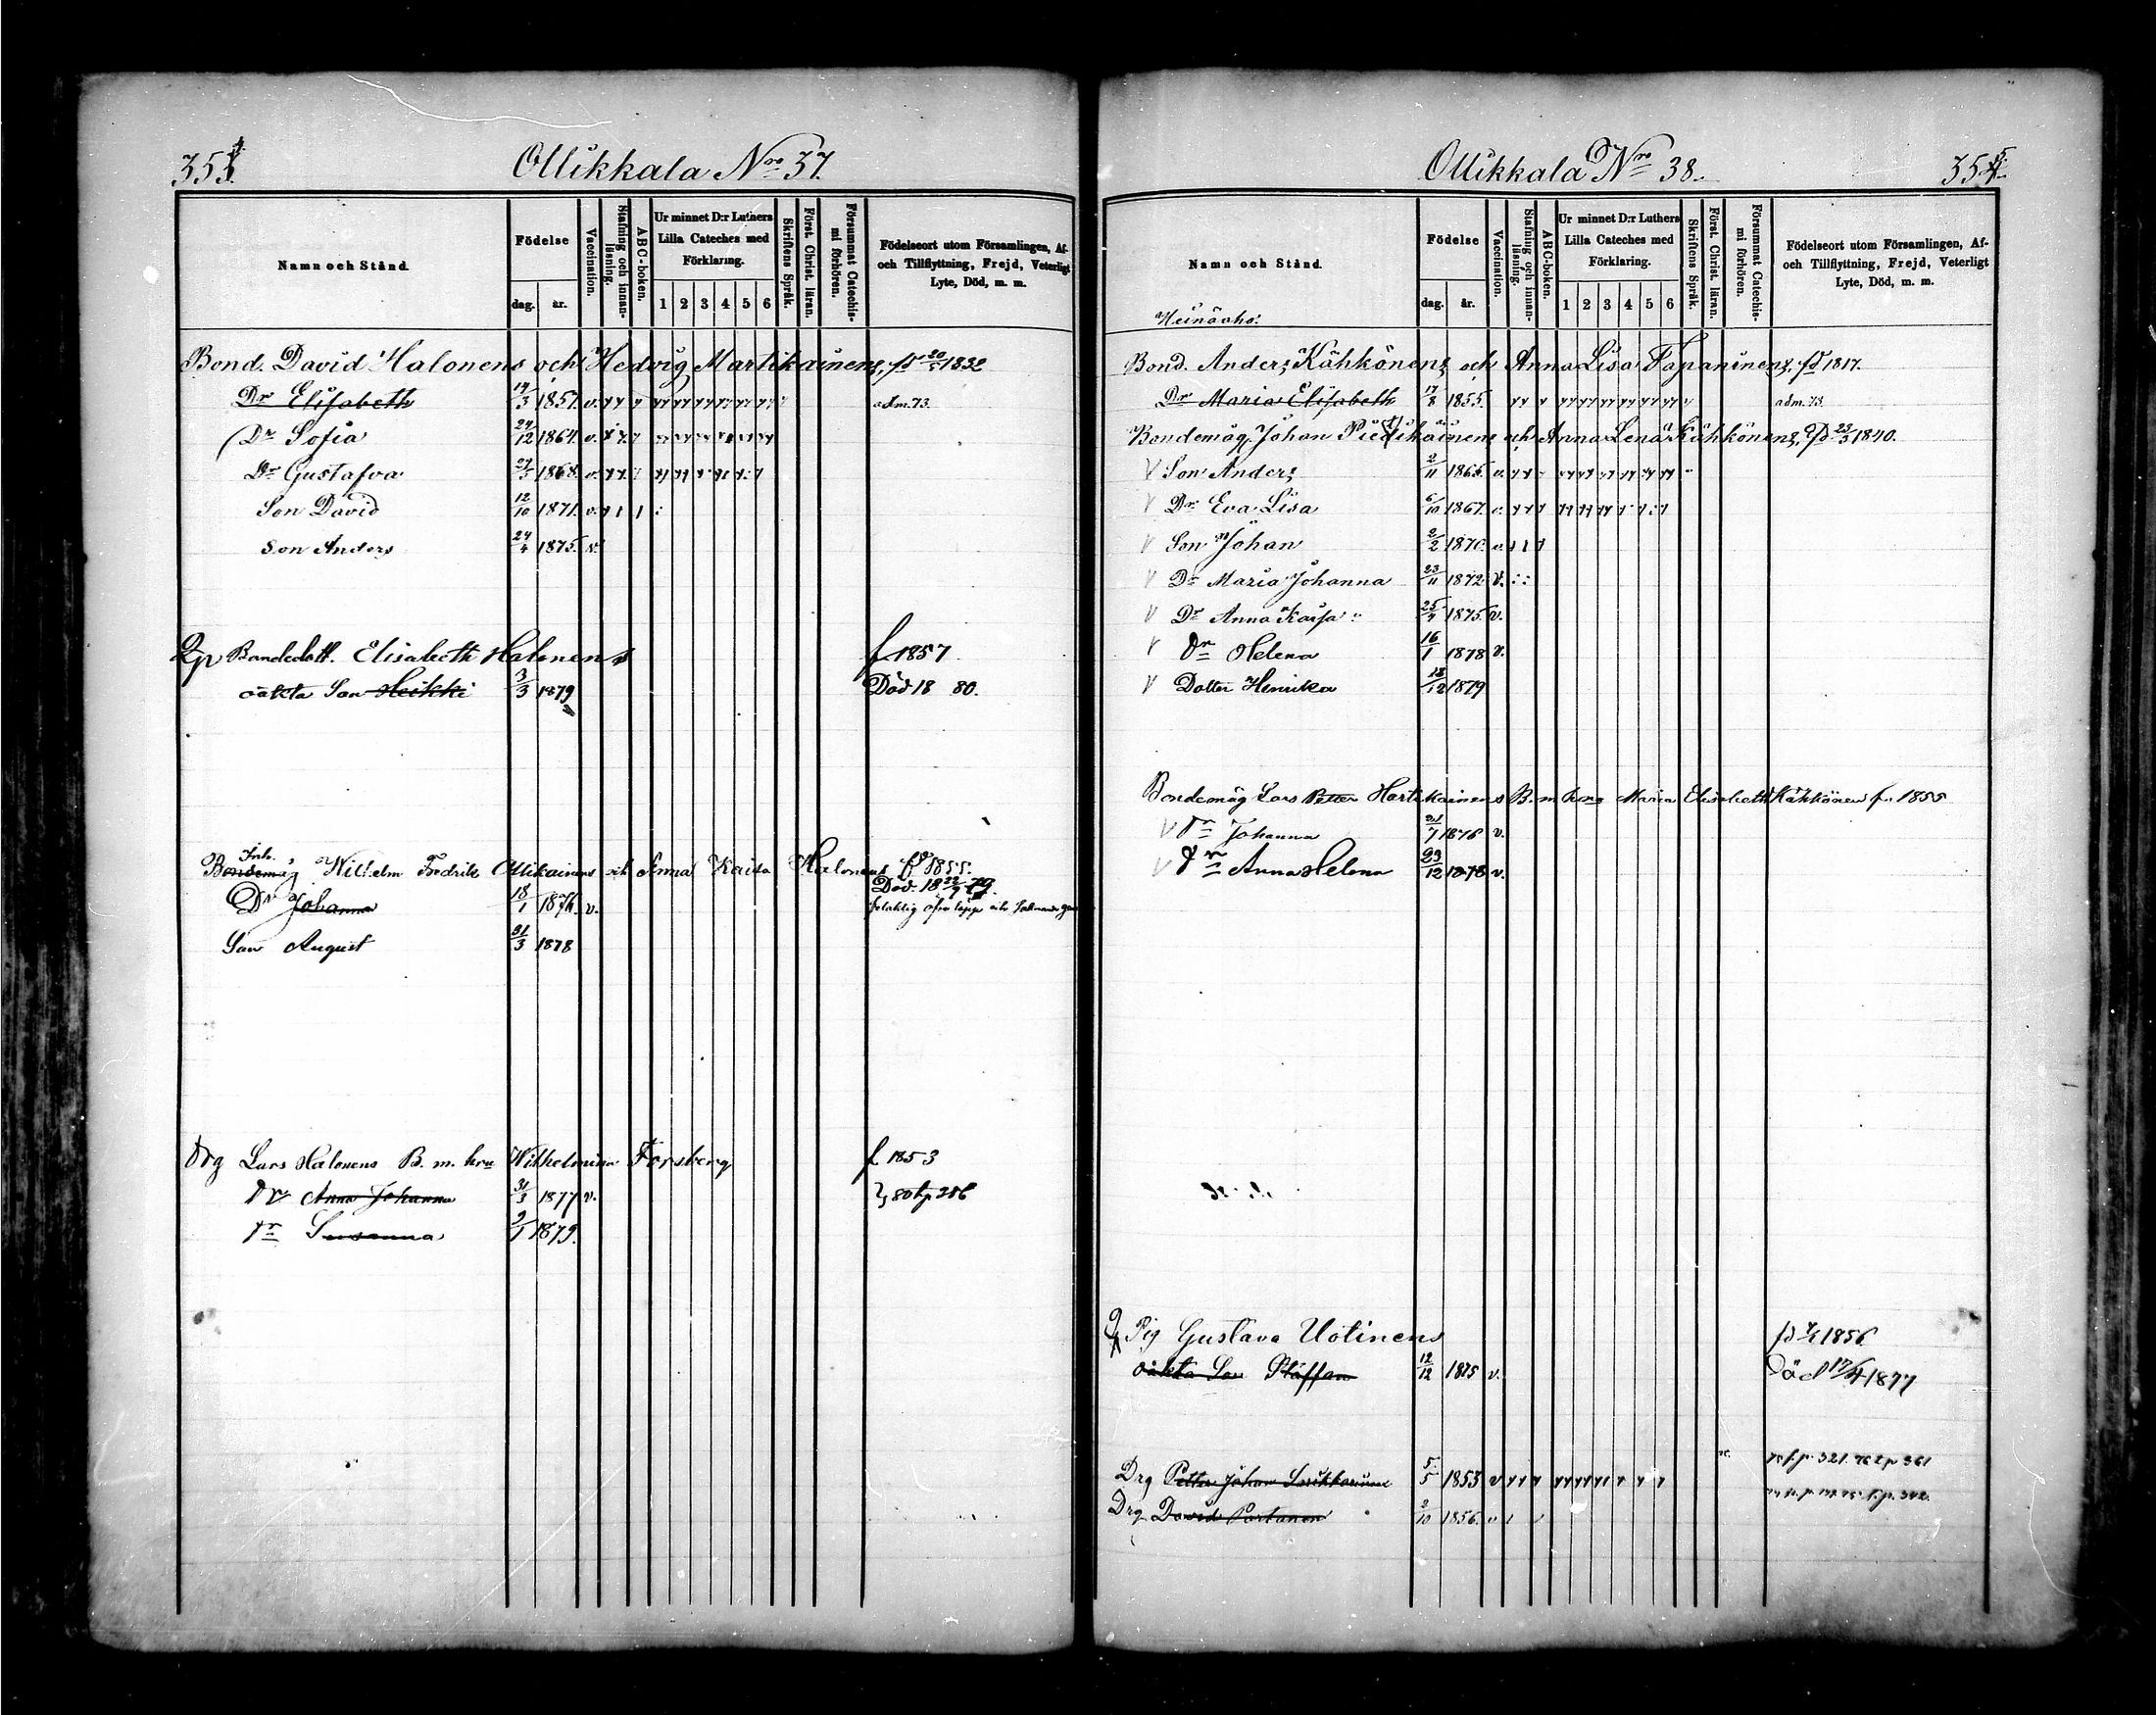 353
Ollikkala Nro 37.
Namn och Stånd.
Födelse
dag.
år.
Vaccination.
Stafning och innan-läsning.
ABC-boken.
Ur minnet D:r Luthers Lilla Cateches med Förklaring.
1 2 3 4 5 6
Skriftens Språk.
Först. Christ. läran.
Försummat Catechis-mi förhören.
Födelseort utom Församlingen, Af- och Tillflyttning, Frejd, Veterligt Lyte, Död, m. m.
Bond. David Halonens och Hedvig Martikainens, fd 1832
Dr Elisabeth 14/3 1857. v. adm. 73.
Dr Sofia 24/12 1864. v.
Dr Gustafva 1868. v.
Son David 12/10 1871. v.
Son Anders 24/4 1875. v.
Qp Bondedott. Elisabeth Halonens f 1857
oäkta Son Heikki 3/3 1879 Död 18 80.
Inh.
Bondemåg Wilhelm Fredrik Ollikainens och Anna Kaisa Halonens fd 1855.
Död. 18 79.
Dr Johanna 18/1 1876. v.
Son August 31/3 1878
Drg Lars Halonens B. m. hru Wilhelmina Forsberg f 1853
Dr Anna Johanna 31/3 1877 v.
Dr Susanna 2/1 1879.
Ollikkala Nro 38.
354
Namn och Stånd.
Heinäaho:
Födelse
dag.
år.
Vaccination.
Stafning och innan-läsning.
ABC-boken.
Ur minnet D:r Luthers Lilla Cateches med Förklaring.
1 2 3 4 5 6
Skriftens Språk.
Först. Christ. läran.
Försummat Catechis-mi förhören.
Födelseort utom Församlingen, Af- och Tillflyttning, Frejd, Veterligt Lyte, Död, m. m.
Bond. Anders Kähkönens och Anna Lisa Tapaninens, fd 1817.
Dr Maria Elisabeth 17/8 1855. adm. 73.
Bondemåg. Johan och Anna Lena Kähkönens, fd 23/3 1840.
V Son Anders 2/11 1865. v.
V Dr Eva Lisa 6/10 1867. v.
V Son Johan 2/2 1870. v.
V Dr Maria Johanna 23/11 1872. v.
V Dr Anna Kaisa 25/4 1875 v.
V Dr Helena 16/1 1878 v.
V Dotter Henrika 18/12 1879
Bondemåg Lars Petter Hartikainens B. m. hru Maria Elisabeth Kähkönen f. 1855
V Dr Johanna 21/7 1876 v.
V Dr Anna Helena 29/12 1878 v.
Pig Gustava Uotinens 1856
oäkta Son Staffan 12/12 1875 v. Död 17/4 1877
Drg Petter Johan 5/5 1853 v
Drg David Partanen 2/10 1856. v